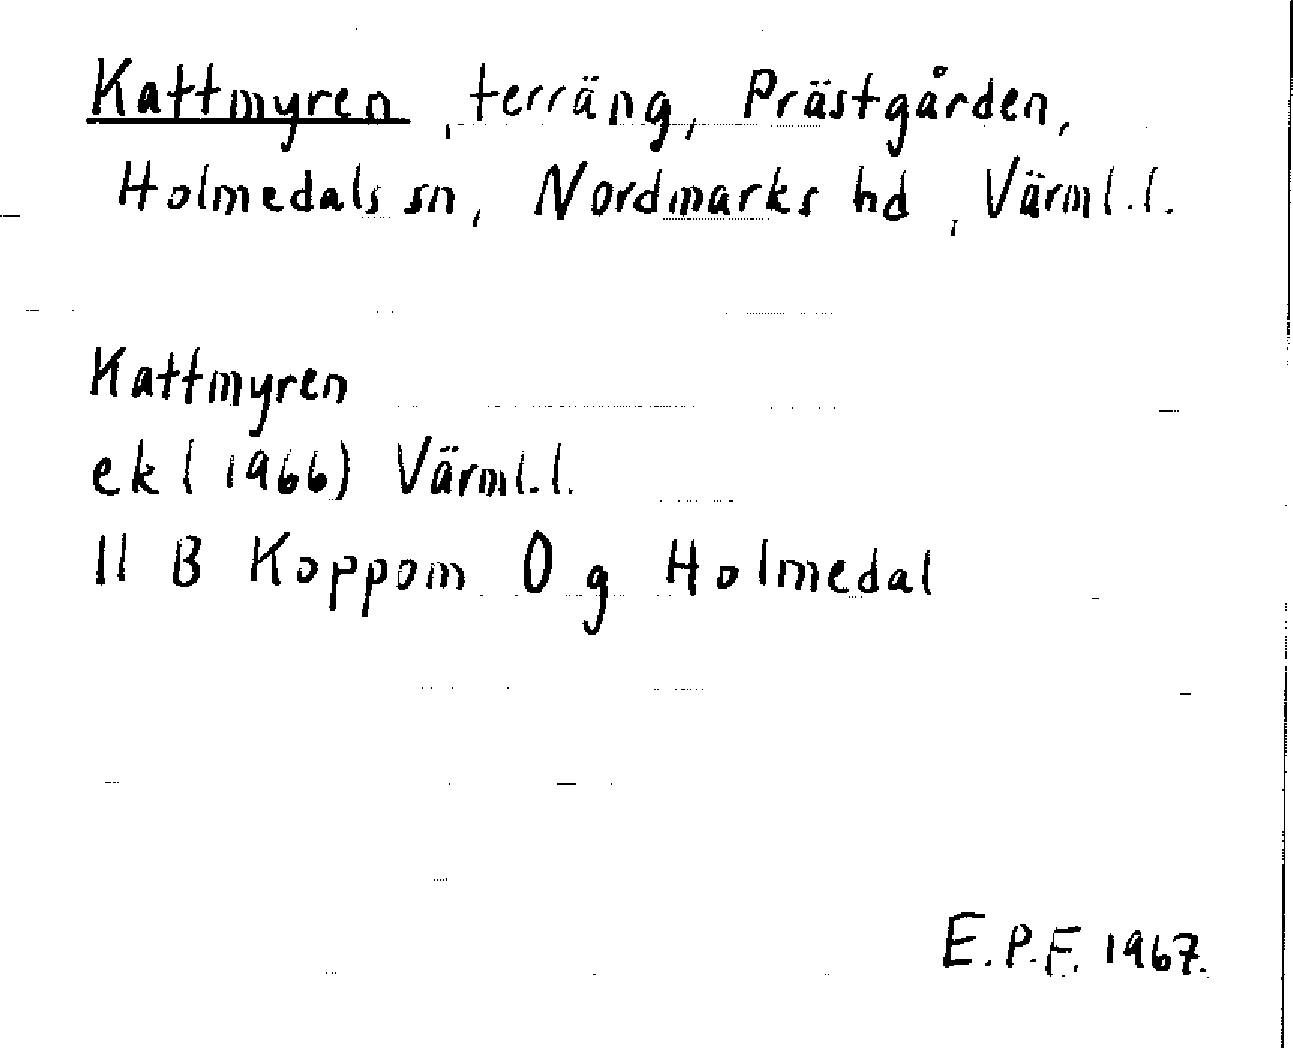 Kattmyren, terräng, Prästgården,
Holmedals sn, Nordmarks hd, Värml.l.
Kattmyren
ek (1966) Värml.l.
11 B Koppom 0 g Holmedal
E.P.F. 1967.